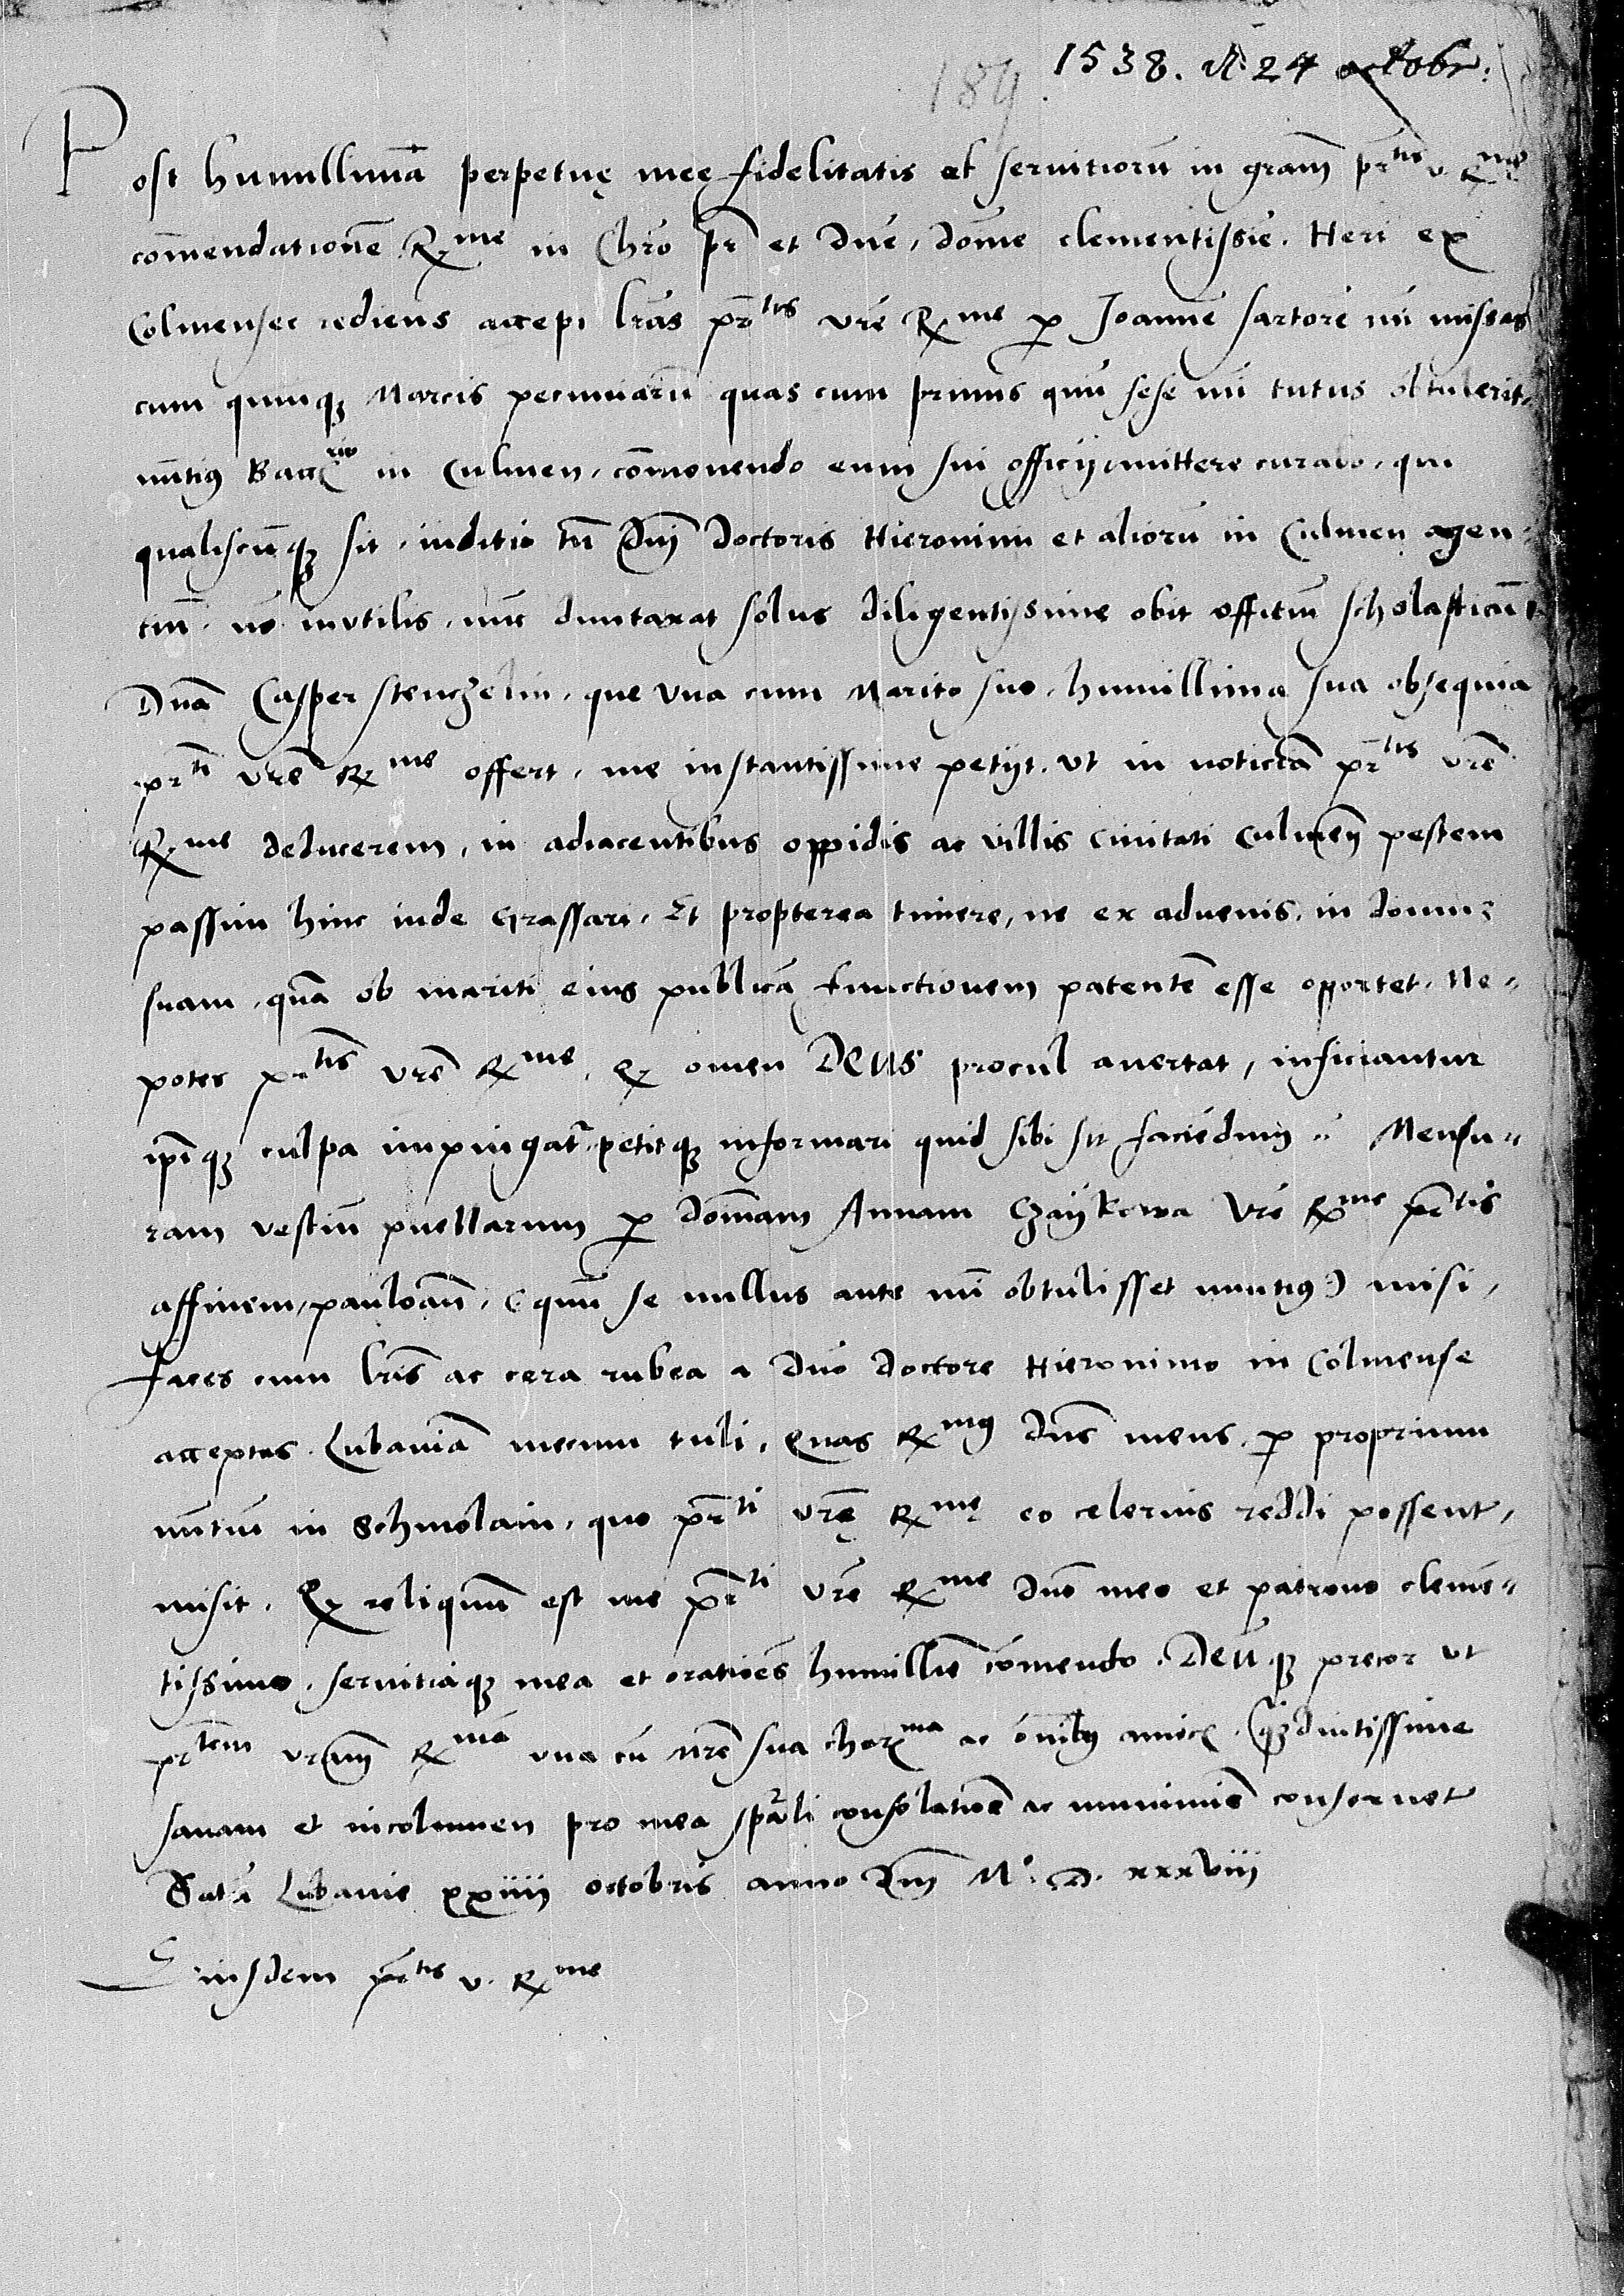 1538. d. 24 octobr.
189.
Post humillimā perpetuę meę fidelitatis et seruitiorū in gram̄ pr̄tis v. Rme
com̄endationē Rme in Chr̄o pr̄ et dn̄e, dom̄e clementissīe. Heri ex
Colmensee rediens accepi lr̄as pr̄tis vr̄e Rme p Joannē sartorē mī missas
cum quinqȝ Marcis pecuniarū quas cum primus qūm sese mī tutus obtulerit,
nūtiꝰ Baccrio in Culmen, com̄onendo eum sui officij mittere curabo, qui
qualiscūqȝ sit, inditio tn̄ Dnī doctoris Hieronimi et aliorū in Culmen agen-
ciū, nō inutilis, nūc duntaxat solus diligentissime obit officiū scholasticū
Dnā Casper stenczelin, que vna cum Marito suo, humillima sua obsequia
pr̄ti vr̄e Rme offert, me instantissime petijt, vt in noticiā pr̄tis vr̄e
Rme deducerem, in adiacentibus oppidis ac villis ciuitati Culmeñ pestem
passim hinc inde Grassari, Et propterea timere, ne ex aduenis, in domū
suam, quā ob mariti eius publicā functionem patentē esse oportet, Ne-
potes pr̄tis vr̄e Rme, qȝ omen DEUS procul auertat, inficiantur
ip̄iqȝ culpa impingat̄, petitqȝ informari quid sibi sit faciēdum. Mensu-
ram vestiū puellarum p dom̄am Annam Czaijkowa vr̄e Rme pr̄tis
affinem, pauloañ, (qūm se nullus ante mī obtulisset nuntiꝰ) misi,
faces cum lr̄is ac cera rubea a dn̄o doctore Hieronimo in Colmense
acceptas Lubauiā mecum tuli, Quas Rmꝰ dn̄s meus, p proprium
nūtiū in Schmolain, quo pr̄ti vr̄ę Rmę eo celerius reddi possent,
misit. Qȝ reliquū est me pr̄ti vr̄e Rme dn̄o meo et patrono clemē-
tissimo, seruitiaqȝ mea et oratioēs humillīe com̄endo. Deūqȝ precor vt
pr̄tem vram̄ Rmā vna cū mr̄e sua charma ac ōnibꝰ amicꝭ qȝdiutissime
sanam et incolumen pro mea sp̄ali consolatioē ac munimīe conseruet
Datā Lubauie xxiiii octobris anno Dnī Mo. D. xxxviii
Eiusdem pr̄tis v. Rme